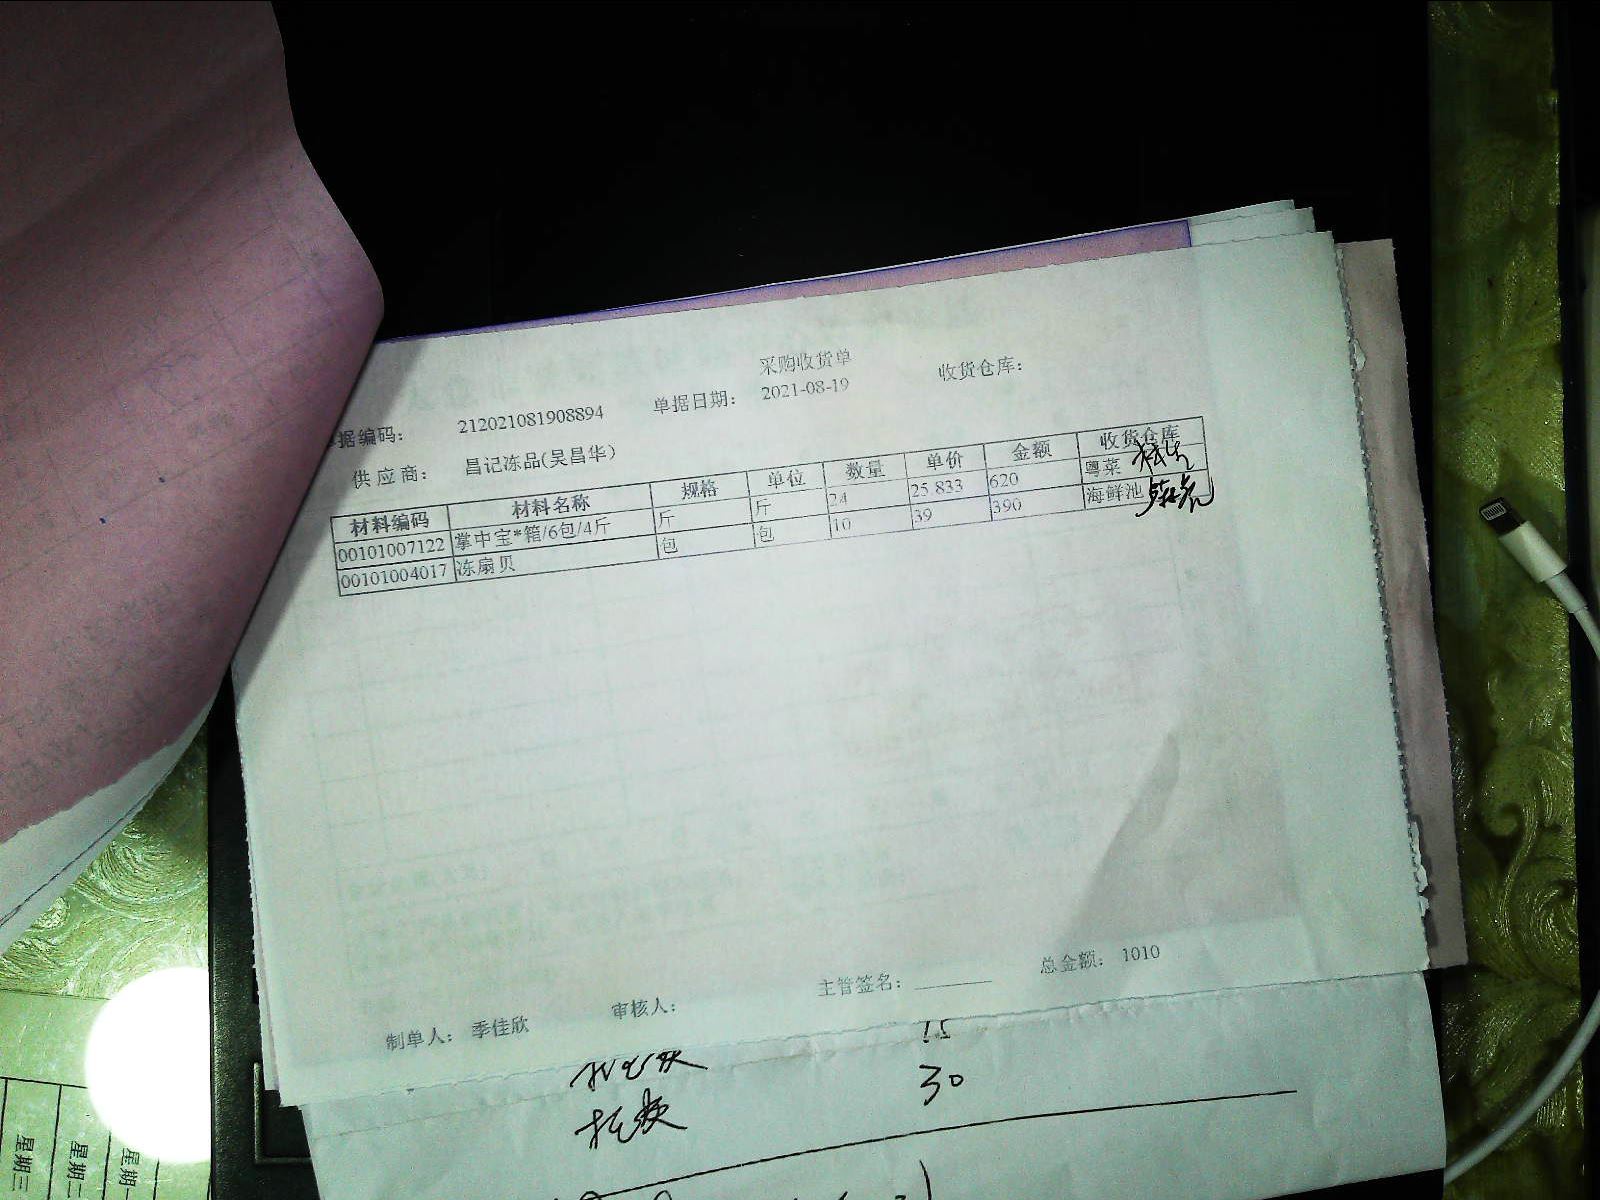 采购收货单
据编码： 212021081908894 单据日期： 2021-08-19 收货仓库：
供应商： 昌记冻品(吴昌华)
材料编码 材料名称 规格 单位 数量 单价 金额 收货仓库
00101007122 掌中宝*箱/6包/4斤 斤 斤 24 25 833 620 粤菜
00101004017 冻扇贝 包 包 10 39 390 海鲜池
制单人： 季佳欣 审核人： 主管签名： 总金额： 1010
15
30
星期一
星期二
星期三